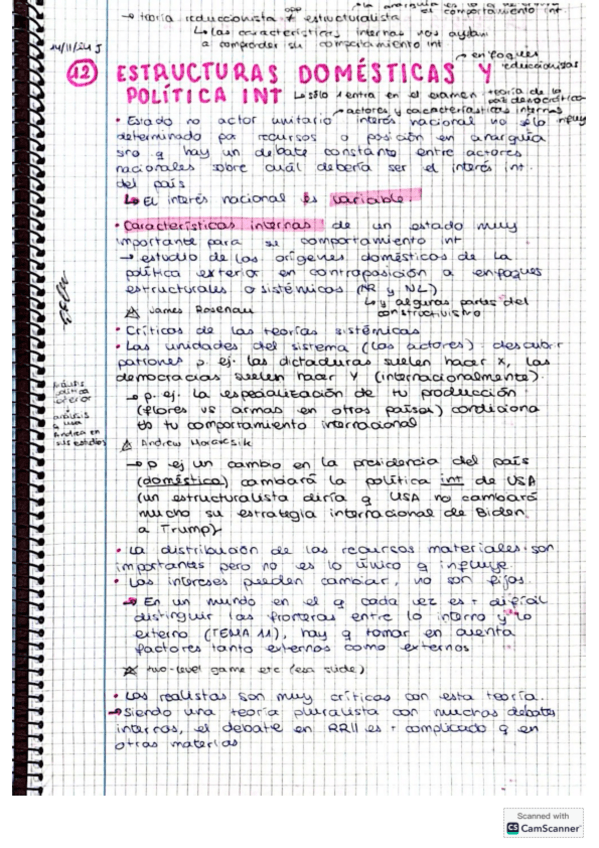 opp
→ teoría reduccionista ≠ estructuralista
↳ las características internas nos ayudan
a comprender su comportamiento int
comportamiento int.
14/11/24 J
→ enfoques
reduccionistas
12 ESTRUCTURAS DOMÉSTICAS Y
POLÍTICA INT ↳ sólo entra en el examen teoría de la
paz democrática
→ actores y características internas
• Estado no actor unitario interés nacional no sólo influy
determinado por recursos o posición en anarquía
sino q hay un debate constante entre actores
nacionales sobre cuál debería ser el interés int.
del país
↳ El interés nacional es variable.
• Características internas de un estado muy
importante para su comportamiento int
→ estudio de los orígenes domésticos de la
política exterior en contraposición a enfoques
estructurales o sistémicos (NR y NL)
↳ y algunas partes del
constructivismo
☆ James Rosenau
• Críticas de las teorías sistémicas
• Las unidades del sistema (los actores): descubrir
patrones p. ej. las dictaduras suelen hacer X, las
democracias suelen hacer Y (internacionalmente).
→ p. ej. la especialización de tu producción
(flores vs armas en otros países) condiciona
tu comportamiento internacional
análisis
política
exterior
análisis
q usa
Andrea en
sus estudios
☆ Andrew Moravcsik
→ p ej un cambio en la presidencia del país
(doméstica) cambiará la política int de USA
(un estructuralista diría q USA no cambiará
mucho su estrategia internacional de Biden
a Trump)
• La distribución de los recursos materiales son
importantes pero no es lo único q influye.
• Los intereses pueden cambiar, no son fijos.
→ En un mundo en el q cada vez es + difícil
distinguir las fronteras entre lo interno y lo
externo (TEMA 11), hay q tomar en cuenta
factores tanto externos como externos
☆ two-level game etc (esa slide)
• Los realistas son muy críticos con esta teoría.
→ Siendo una teoría pluralista con muchos debates
internos, el debate en RRII es + complicado q en
otras materias
Scanned with
CS CamScanner